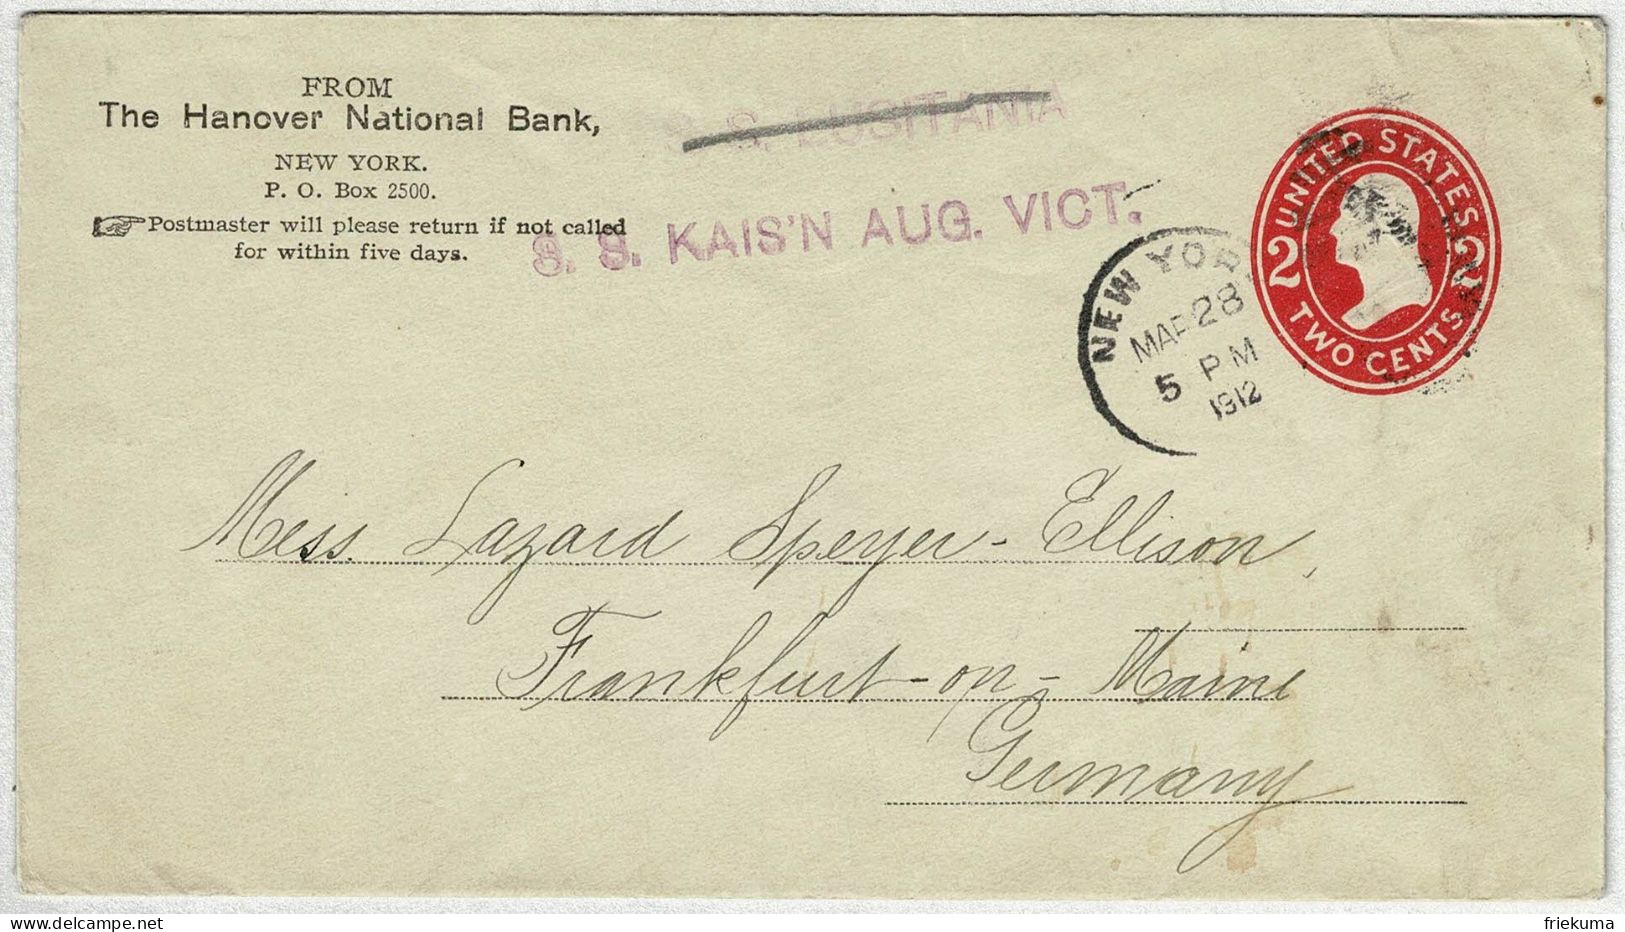 FROM
The Hanover National Bank,
NEW YORK.
P. O. Box 2500.
Postmaster will please return if not called
for within five days.
S. S. LUSITANIA
S. S. KAIS'N AUG. VICT.
NEW YORK
MAR 28
5 PM
1912
UNITED STATES
2 2
TWO CENTS
Mess. Lazard Speyer-Ellison,
Frankfurt-on-Maine
Germany
friekuma